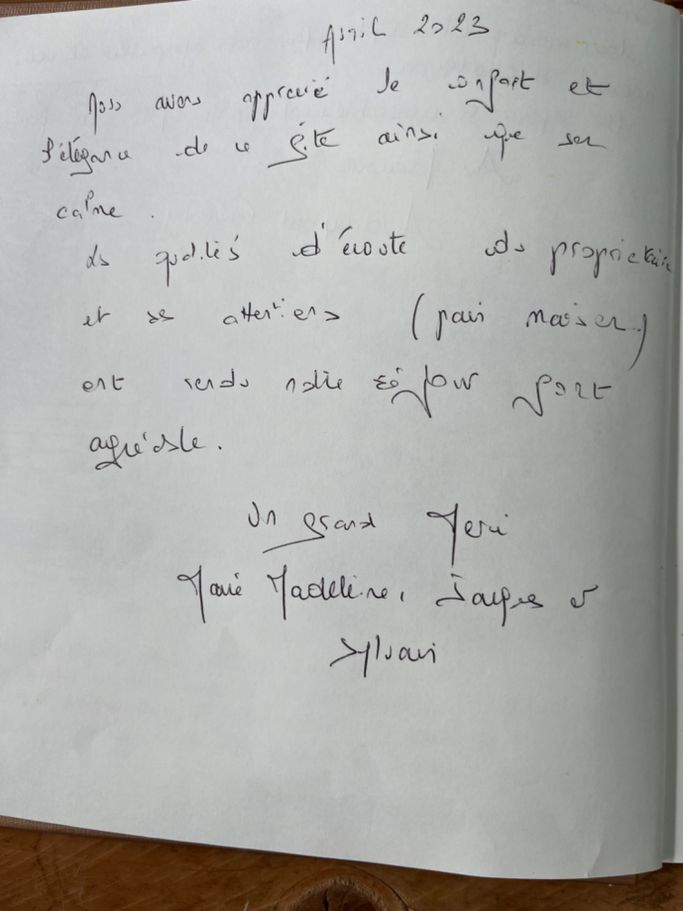 Avril 2023
Nous avons apprécié le confort et
l'élégance de ce gîte ainsi que son
calme.
Les qualités d'écoute du propriétaire
et ses attentions (pain maison)
ont rendu notre séjour fort
agréable.
Un grand Merci
Marie Madeleine, Jacques et
Sylvain